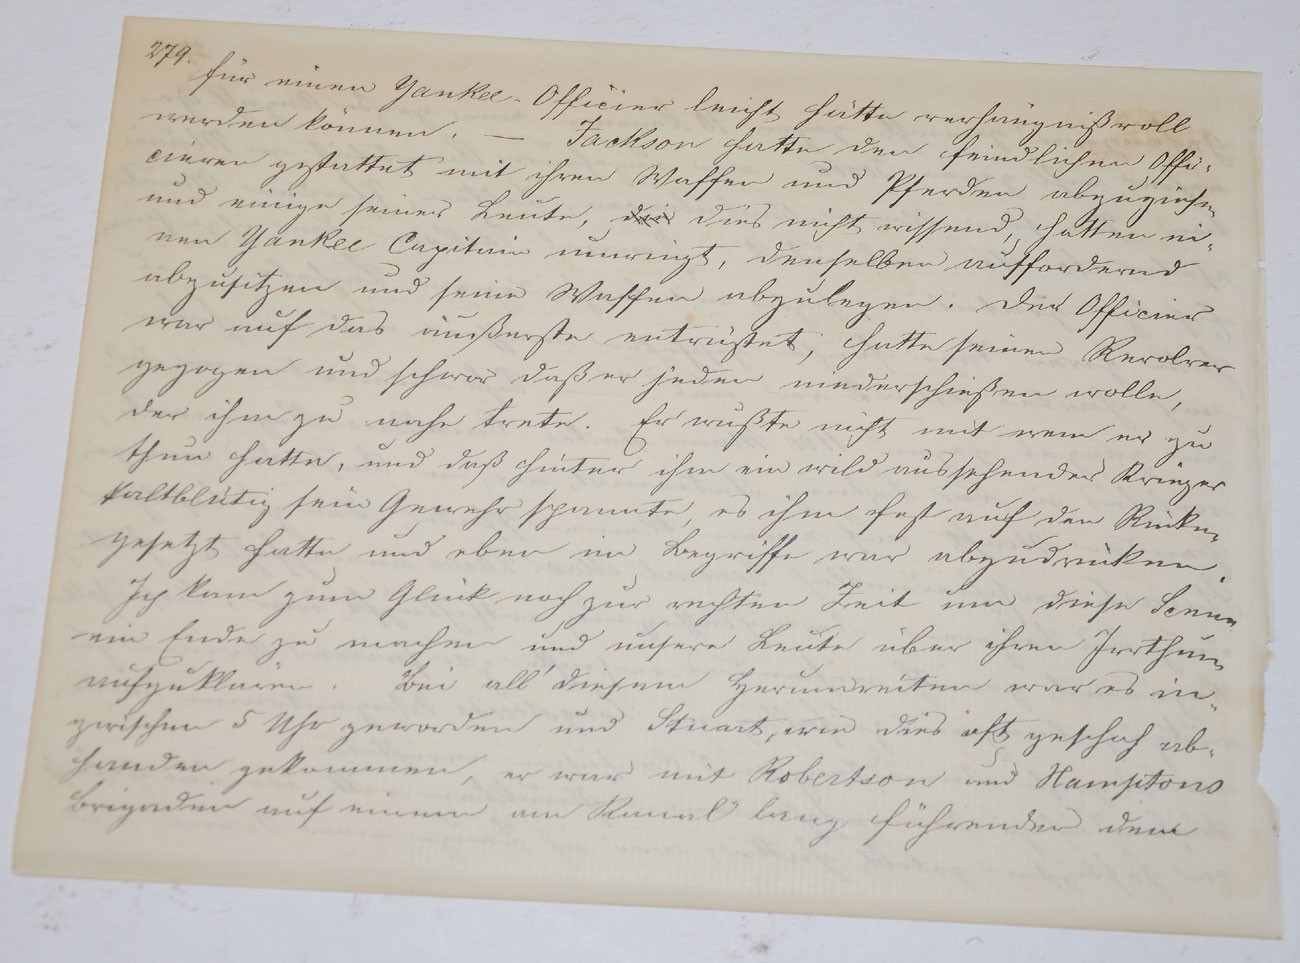 279.
für einen Yankee-Officier leicht hätte verhängnißvoll
werden können. — Jackson hatte den feindlichen Offi-
cieren gestattet mit ihren Waffen und Pferden abzuziehen
und einige seiner Leute, die dies nicht wissend, hatten ei-
nen Yankee Capitain umringt, denselben auffordernd
abzusitzen und seine Waffen abzulegen. Der Officier
war auf das äußerste entrüstet, hatte seinen Revolver
gezogen und schwor daß er jeden niederschießen wolle,
der ihm zu nahe trete. Er wußte nicht mit wem er zu
thun hatte, und daß hinter ihm ein wild aussehender Krieger
kaltblütig sein Gewehr spannte, es ihm fest auf den Rücken
gesetzt hatte und eben im Begriffe war abzudrücken.
Ich kam zum Glück noch zur rechten Zeit um diese Scene
ein Ende zu machen und unsere Leute über ihren Irrthum
aufzuklären. Bei all' diesem Herumreiten war es in-
zwischen 5 Uhr geworden und Stuart, wie dies oft geschah ab-
handen gekommen, er war mit Robertson und Hamptons
Brigaden auf einem am Kanal lang führenden dem